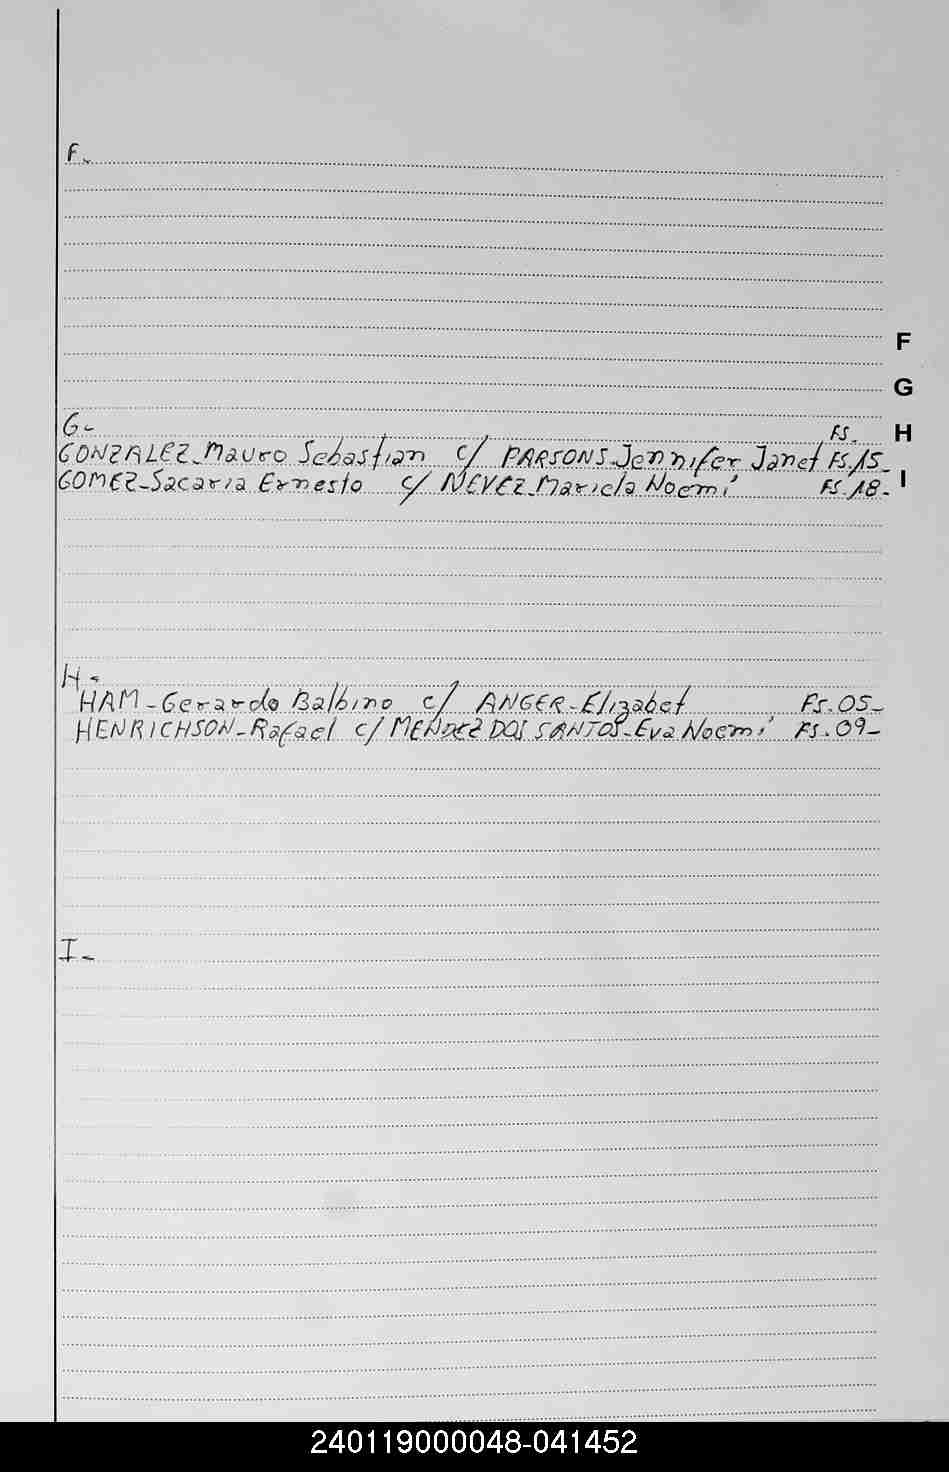 F.-
F
G
G.-
FS.
H
GONZALEZ-Mauro Sebastian c/ PARSONS-Jennifer Janet FS.15-
I
GOMEZ-Sacaria Ernesto c/ NEVEZ-Mariela Noemí FS.18-
H.-
HAM-Gerardo Balbino c/ ANGER-Elizabet FS.05-
HENRICHSON-Rafael c/ MENDEZ DOS SANTOS-Eva Noemí FS.09-
I-
240119000048-041452